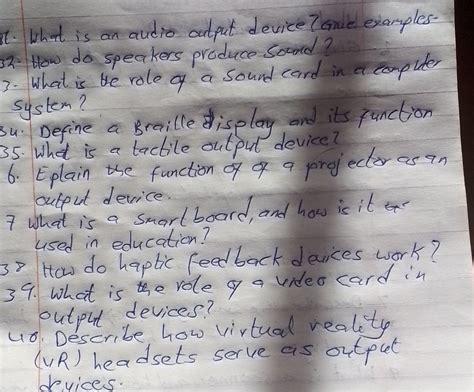 31. What is an audio output device? Give examples.
32. How do speakers produce sound?
3. What is the role of a sound card in a computer
system?
34. Define a Braille display and its function
35. What is a tactile output device?
6. Eplain the function of of a projector as an
output device.
7 What is a smartboard, and how is it as
used in education?
38 How do haptic feedback devices work?
39. What is the role of a video card in
output devices?
40. Describe how virtual reality
(VR) headsets serve as output
devices.